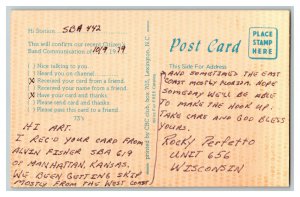 Hi Station SBA 442
This will confirm our recent Citizens
Band Communication 10/9 1979
( ) Nice talking to you.
( ) Heard you on channel
(X) Received your card from a friend.
( ) Received your name from a friend.
(X) Have your card and thanks.
( ) Please send card and thanks
( ) Please pass this card to a friend
73's
HI ART.
I REC'D YOUR CARD FROM
ALVIN FISHER SBA 619
OF MANHATTAN, KANSAS.
WE BEEN GETTING SKIP
MOSTLY FROM THE WEST COAST
printed by CBC club box 703, Lexington, N.C.
Post Card
PLACE
STAMP
HERE
This Side For Address
AND SOMETIMES THE EAST
COAST MOSTLY FLORIDA. HOPE
SOMEDAY WE'LL BE ABLE
TO MAKE THE HOOK UP.
TAKE CARE AND GOD BLESS
YOURS.
Rocky Perfetto
UNIT 656
WISCONSIN